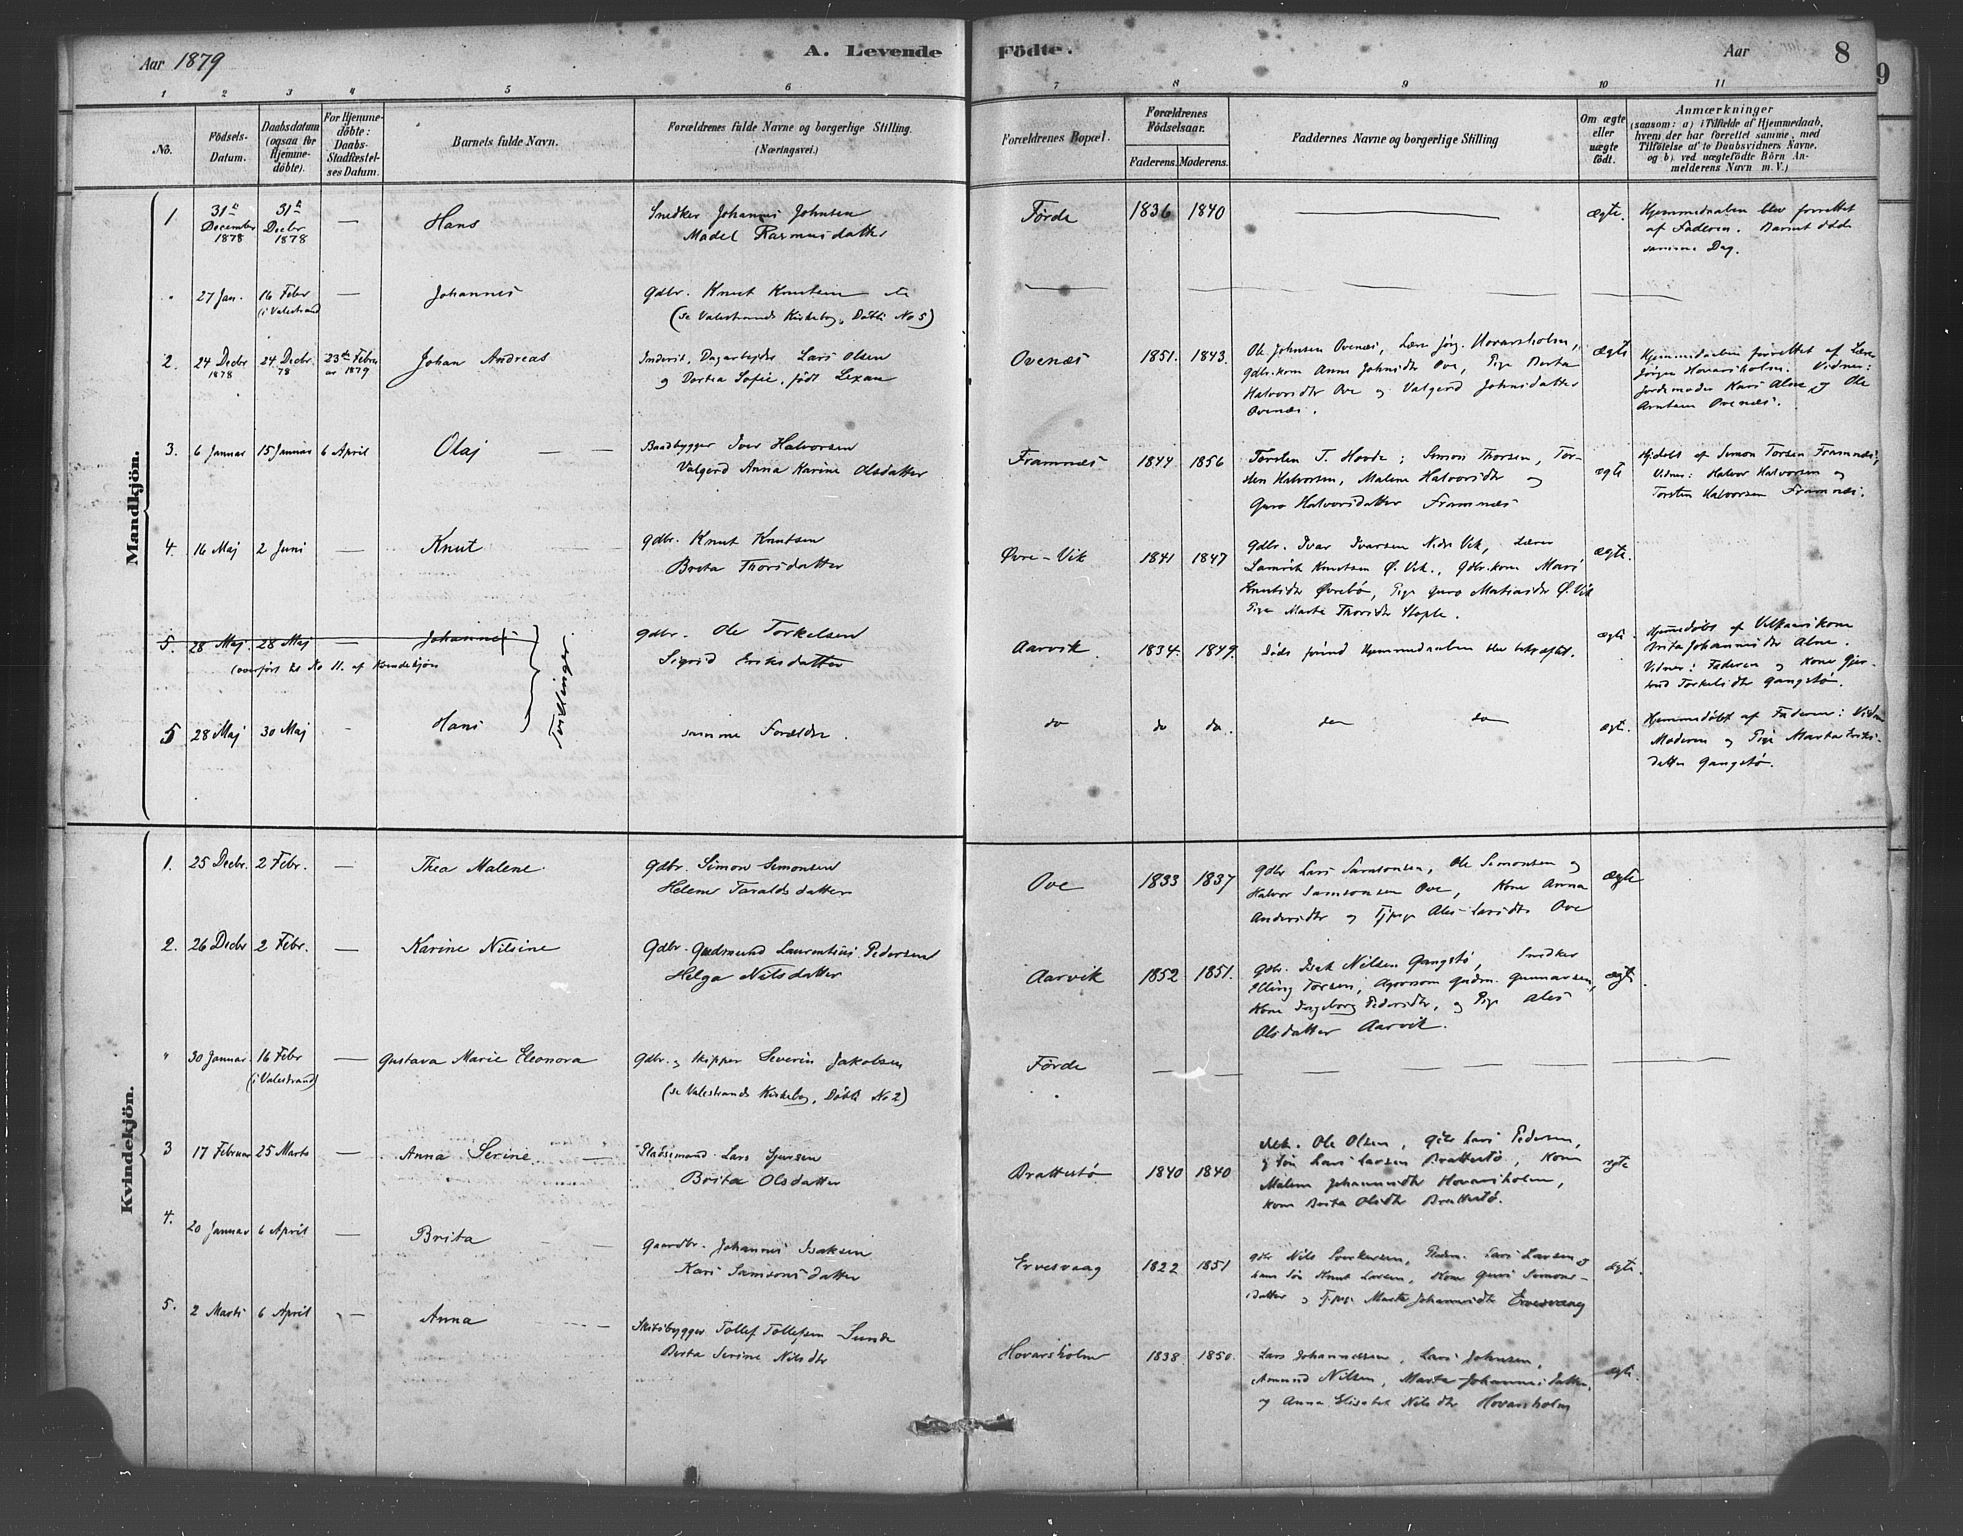 Aar 1879
A. Levende
Födte.
Aar
8
9
1 2 3 4 5 6 7 8 9 10 11
No.
Födsels-
Datum.
Daabsdatum
(ogsaa for
Hjemme-
döbte).
For Hjemme-
döbte:
Daabs-
Stadfæstel-
ses Datum.
Barnets fulde Navn.
Forældrenes fulde Navne og borgerlige Stilling.
(Næringsvei.)
Forældrenes Bopæl.
Forældrenes
Födselsaar.
Faderens. Moderens.
Faddernes Navne og borgerlige Stilling
Om ægte
eller
uægte
födt.
Anmærkninger
(saasom: a) i Tilfælde af Hjemmedaab,
hvem der har forrettet samme, med
Tilföielse af to Daabsvidners Navne,
og b) ved uægtefödte Börn An-
melderens Navn m. V.)
Mandkjön.
1 31te December 1878 31te Decbr 1878 — Hans
Snedker Johannes Johnsen
Madel Rasmusdatter
Førde 1836 1840 — ægte.
Hjemmedaaben blev forrettet
af Faderen. Barnet døde
samme Dag.
" 27 Jan. 16 Febr (i Valestrand) — Johannes
Gdbr. Knut Knutsen
(se Valestrands Kirkebog, Døbte No 5)
2. 24 Decbr 1878 24 Decbr. 78 23de Februar 1879 Johan Andreas
Inderst, Dagarbeider Lars Olsen
og Dortea Sofie, født Lexau
Ovenæs 1851. 1843.
Ole Johnsen Ovenæs, Lærer Jørg. Hovarsholm,
Gdbr.kone Anna Johnsdtr Ove, Pige Berta
Halvorsdtr Ove og Valgerd Johnsdatter
Ovenæs.
ægte
Hjemmedaaben forrettet af Lærer
Jørgen Hovarsholm. Vidner:
Jordemoder Kari Alne og Ole
Arntsen Ovenæs.
3. 6 Januar 15 Januar 6 April Olaj
Baadbygger Iver Halvorsen
Valgerd Anna Karine Olsdatter
Framnæs 1844 1856
Torsten T. Hovde; Simon Thorsen, Tor-
sten Halvorsen, Malene Halvorsdtr og
Guro Halvorsdatter Framnæs
ægte
Hjdøbt af Simon Torsen Framnæs,
Vidner: Halvor Halvorsen og
Torsten Halvorsen Framnæs.
4. 16 Maj 2 Juni — Knut
Gdbr. Knut Knutsen
Brita Thorsdatter
Øvre-Vik 1841 1847
Gdbr. Ivar Ivarsen Nedre Vik, Lærer
Lamrik Knutsen Ø. Vik., Gdbr.kone Mari
Knutsdtr Øvrebø, Pige Guro Matiasdtr Ø. Vik
Pige Marta Thorsdtr Stople.
ægte.
5. 28 Maj 28 Maj — Johannes
(overført til No 11. af Kvindekjøn
Gdbr. Ole Torkelsen
Sigrid Eriksdatter
Aarvik. 1834. 1849.
Døde førend Hjemmedaaben blev bekræftet.
ægte.
Hjemmedøbt af
Brita Johannesdtr Alne.
Vidner: Faderen og Kone Gjer-
trud Torkelsdtr Gangstø.
5 28 Maj 30 Maj - Hans
Tvillinger.
samme Forældre.
do do do. do ægte.
Hjemmedøbt af Faderen: Vidner
Moderen og Pige Marta Eriks-
datter Gangstø.
Kvindekjön.
1. 25 Decbr. 2 Febr. — Thea Malene
Gdbr. Simon Simonsen
Helene Taraldsdatter
Ove 1833 1837
Gdbr Lars Samsonsen, Ole Simonsen og
Halvor Samsonsen Ove, Kone Anna
Andersdtr og Tjpige Ales Larsdtr Ove
ægte
2. 26 Decbr 2 Febr. — Karine Nilsine
Gdbr. Gudmund Laurentius Pedersen
Helga Nilsdatter
Aarvik 1852 1851.
Gdbr. Isak Nilsen Gangstø, Snedker
Elling Torsen, Gudm. Gunnarsen,
Kone Ingeborg Pedersdtr, og Pige Ales
Olsdatter Aarvik.
ægte.
" 30 Januar 16 Febr (i Valestrand) — Gustava Marie Eleonora
Gdbr. og Skipper Severin Jakobsen
(se Valestrands Kirkebog, Døbte No 2)
Førde
3 17 Februar 25 Marts — Anna Serine
Pladsemand Lars Sjursen
Brita Olsdatter
Brattestø 1840 1840
Ole Olsen, Lars Pedersen,
og Søn Lars Larsen Brattestø, Kone
Malene Johannesdtr Hovarsholm,
Kone Brita Olsdtr Brattestø.
ægte
4. 20 Januar 6 April — Brita
Gaardbr. Johannes Isaksen
Kari Samsonsdatter
Ervesvaag 1822 1851
Gdbr Nils Sverkersen, Lars Larsen og
hans Søn Knut Larsen, Kone Guri Simons-
datter og Tjpige Marta Johannesdtr Ervesvaag
ægte.
5. 2 Marts 6 April — Anna
Skibsbygger Tollef Tollefsen Sunde
Berta Serine Nilsdtr
Hovarsholm 1838 1850.
Lars Johannessen, Lars Johnsen,
Amund Nilsen, Marta Johannesdatter,
og Anna Elisabet Nilsdtr Hovarsholm
ægte.